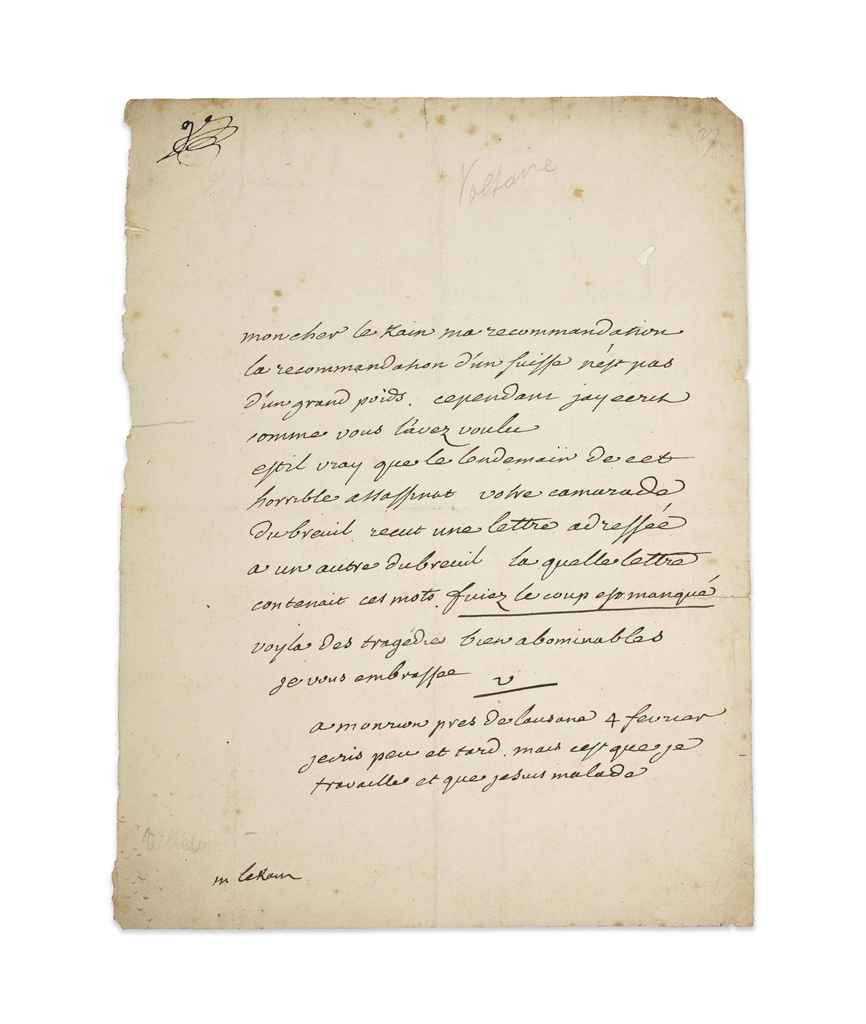 Voltaire
mon cher le Kain ma recommandation
la recommandation d'un suisse n'est pas
d'un grand poids. cependant jay ecrit
comme vous l'avez voulu
estil vray que le lendemain de cet
horrible assassinat votre camarade
dubreuil recut une lettre adressée
a un autre dubreuil la quelle lettre
contenait ces mots, fuiez le coup est manqué
voyla des tragédie bien abominables
je vous embrasse V
a monrion pres de lausane 4 fevrier
jecris peu et tard. mais c'est que je
travaille et que je suis malade
m lekain